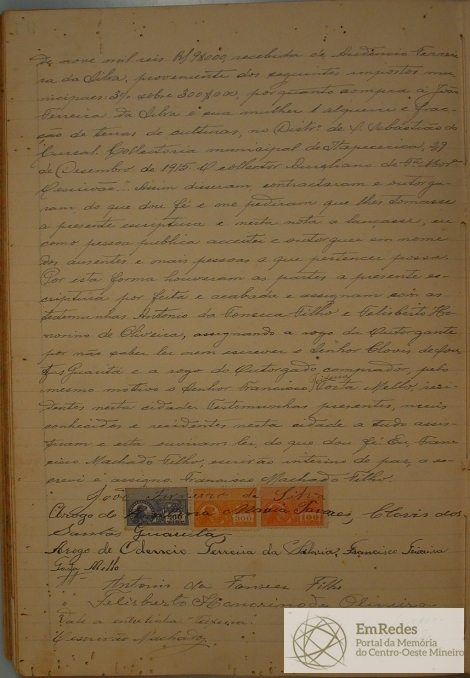 de nove mil reis R/ 9$000, recebida de Audencio Ferrei-
ra da Silva, proveniente dos seguintes impostos mu-
nicipaes: 3% sobre 300$000, porquanto compra a João
Ferreira da Silva e sua mulher 1 alqueire e frac-
ção de terras de culturas, no Distº de S. Sebastião do
Curral. Collectoria municipal de Itapecerica, 29
de Dezembro de 1915. O collector
Escrivão: Assim disseram, contractaram e outorga-
ram, do que dou fé e me pediram que lhes lavrasse
a presente escriptura e nesta nota a lançasse, eu
como pessoa publica acceitei e outorguei em nome
dos ausentes e mais pessoas a que pertencer possa.
Por esta forma houveram as partes a presente es-
criptura por feita e acabada e assignam com as
testemunhas Antonio da Fonseca Filho e Felisberto Ho-
norino de Oliveira, assignando a rogo da Outorgante
por não saber ler nem escrever o Senhor Clovis dos San-
tos Guarita e a rogo do Outorgado comprador, pelo
mesmo motivo o Senhor Francisco Teixeira Costa Mello, resi-
dentes nesta cidade. Testemunhas presentes, meus
conhecidos e residentes nesta cidade a tudo assis-
tiram e esta ouviram ler, do que dou fé. Eu, Fran-
cisco Machado Filho, escrivão interino de paz, o es-
crevi e assigno. Francisco Machado Filho.
João Ferreira da Silva
Arogo de Maria Tavares, Clovis dos
Santos Guarita
Arogo de Ferreira da Silva Francisco Teixeira
Mello
Antonio da Fonseca Filho
Felisberto Honorino de Oliveira
Vale a entrelinha "Teixeira".
Machado
EmRedes
Portal da Memória
do Centro-Oeste Mineiro